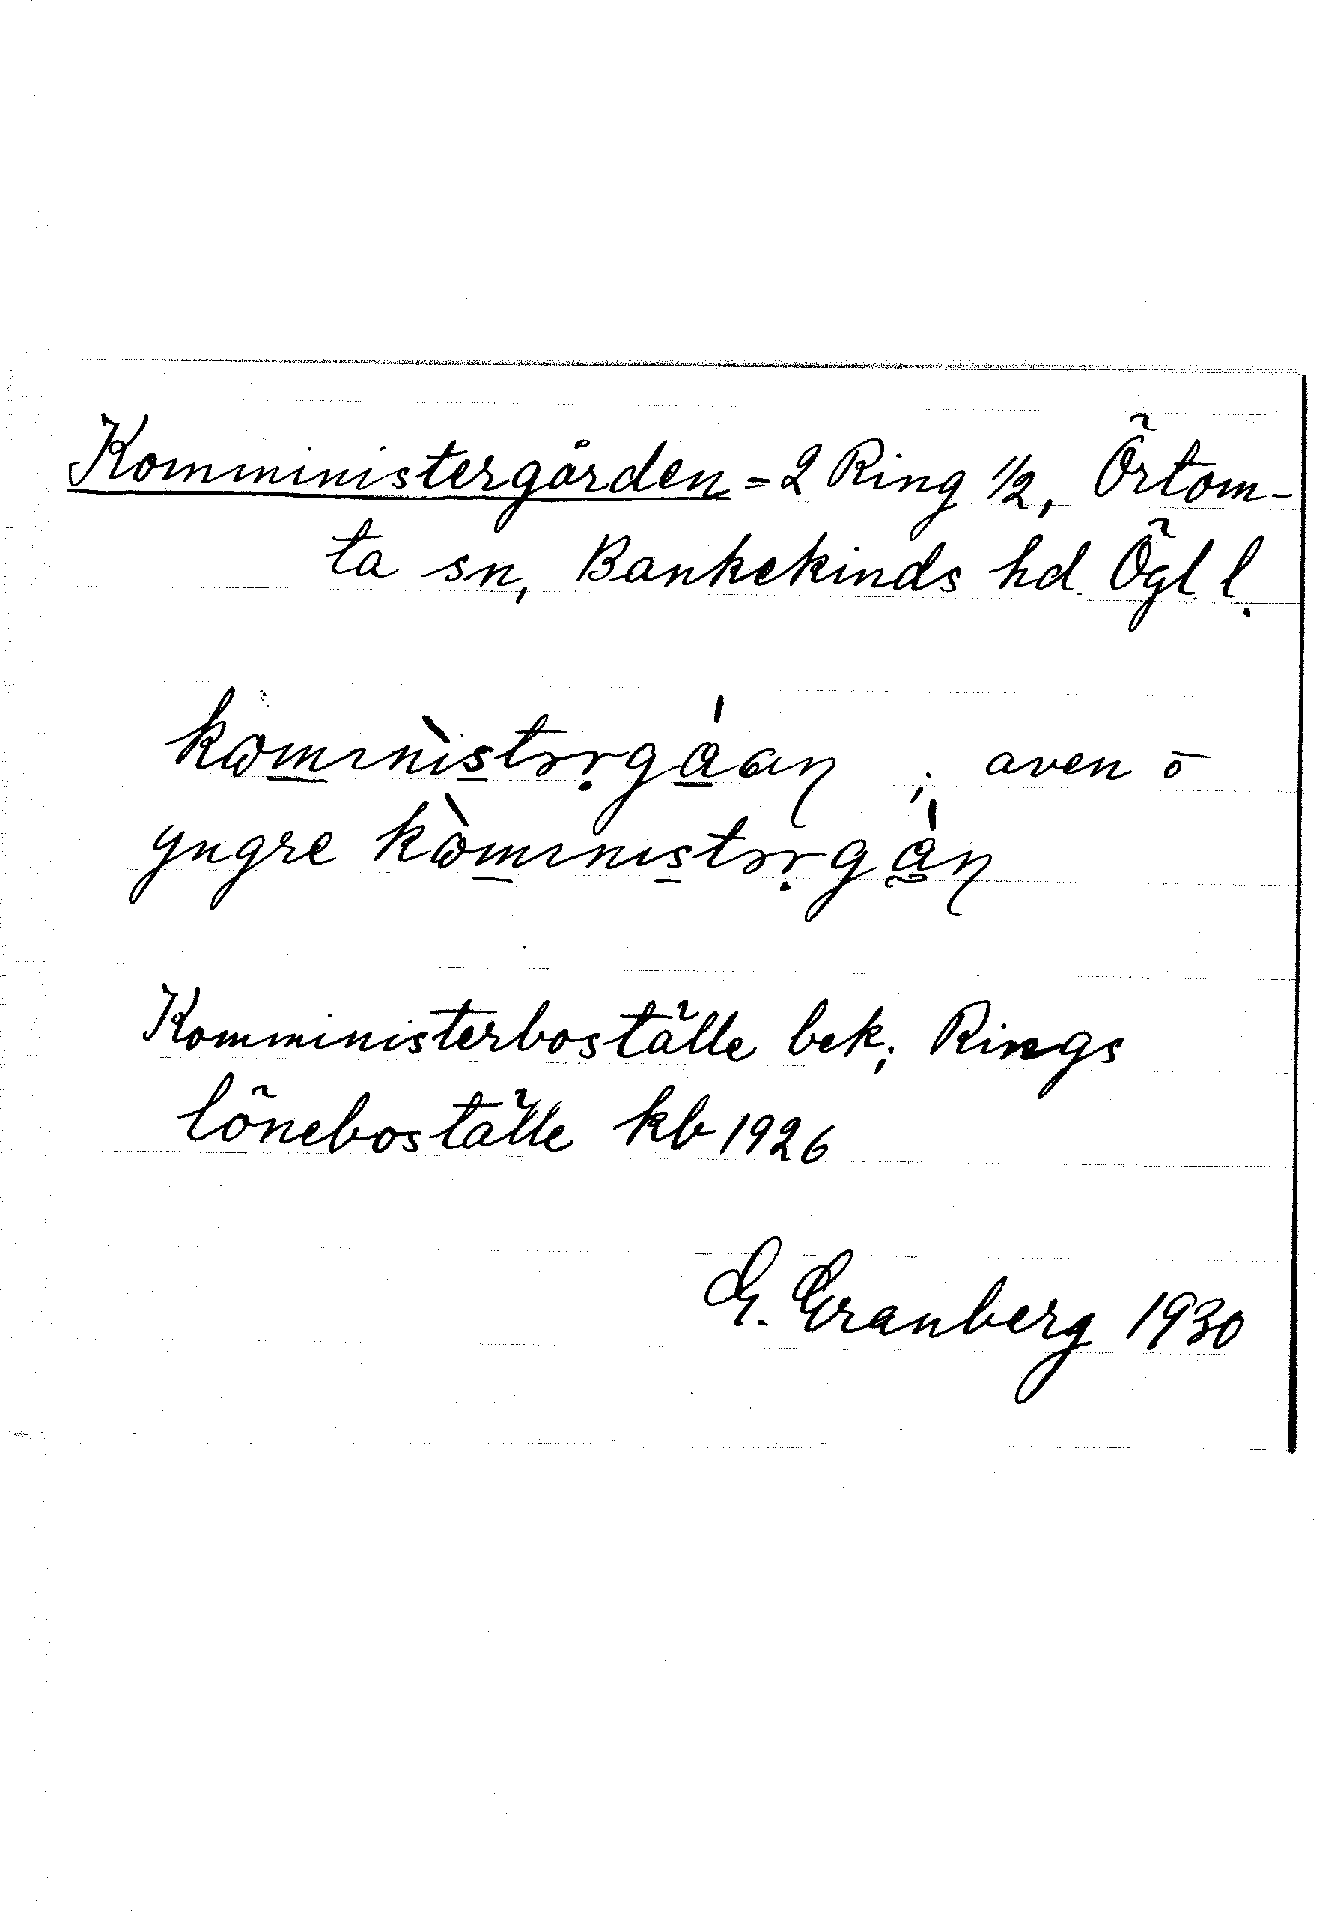 Komministergården = 2 Ring 1/2, Örtom-
ta sn, Bankekinds hd Ögl l.
kωminìstrr̥gáan ; aven o
yngre kὼministrr̥gàn
Komministerboställe bek; Rings
löneboställe kb 1926
G. Granberg 1930